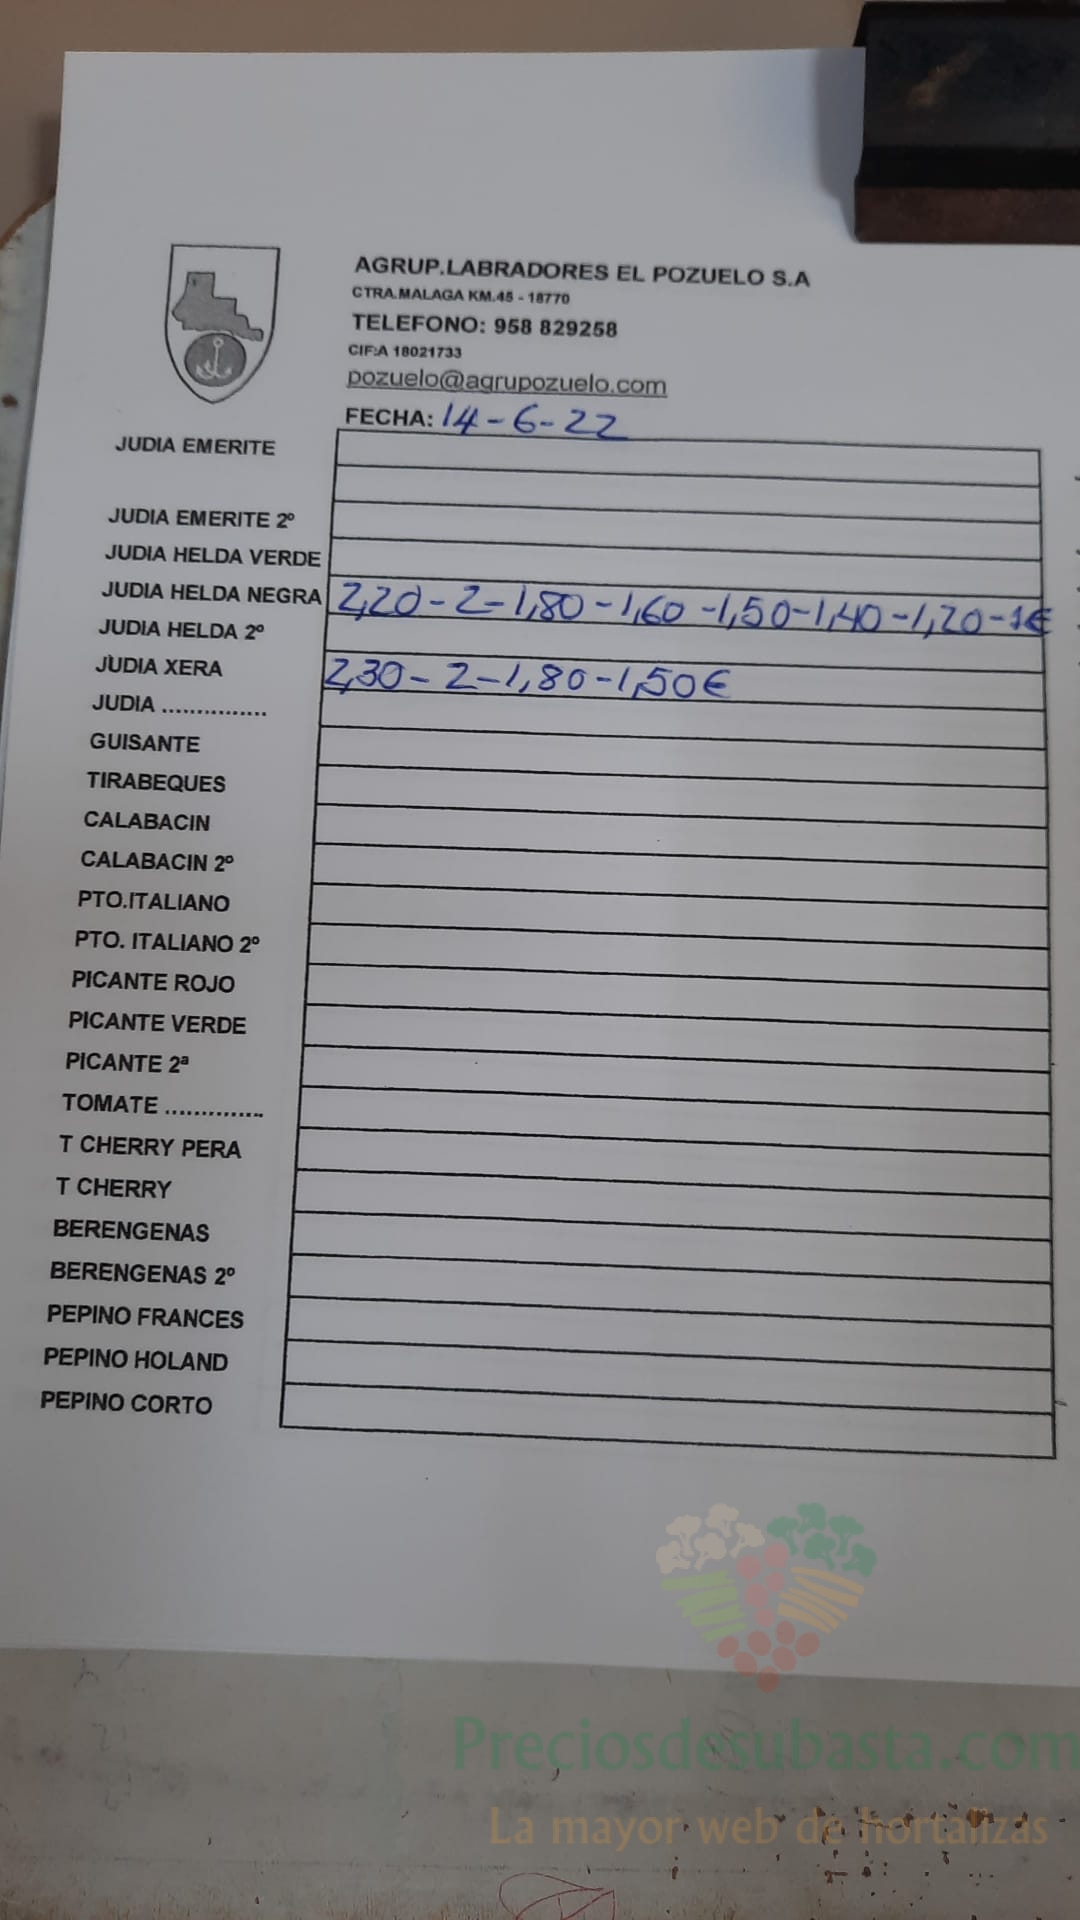 AGRUP.LABRADORES EL POZUELO S.A
CTRA.MALAGA KM.45 - 18770
TELEFONO: 958 829258
CIF:A 18021733
pozuelo@agrupozuelo.com
FECHA: 14-6-22
JUDIA EMERITE
JUDIA EMERITE 2º
JUDIA HELDA VERDE
JUDIA HELDA NEGRA 2,20-2-1,80-1,60-1,50-1,40-1,20-1€
JUDIA HELDA 2º
JUDIA XERA 2,30-2-1,80-1,50€
JUDIA ...............
GUISANTE
TIRABEQUES
CALABACIN
CALABACIN 2º
PTO.ITALIANO
PTO. ITALIANO 2º
PICANTE ROJO
PICANTE VERDE
PICANTE 2ª
TOMATE ..............
T CHERRY PERA
T CHERRY
BERENGENAS
BERENGENAS 2º
PEPINO FRANCES
PEPINO HOLAND
PEPINO CORTO
Preciosdesubasta.com
La mayor web de hortalizas